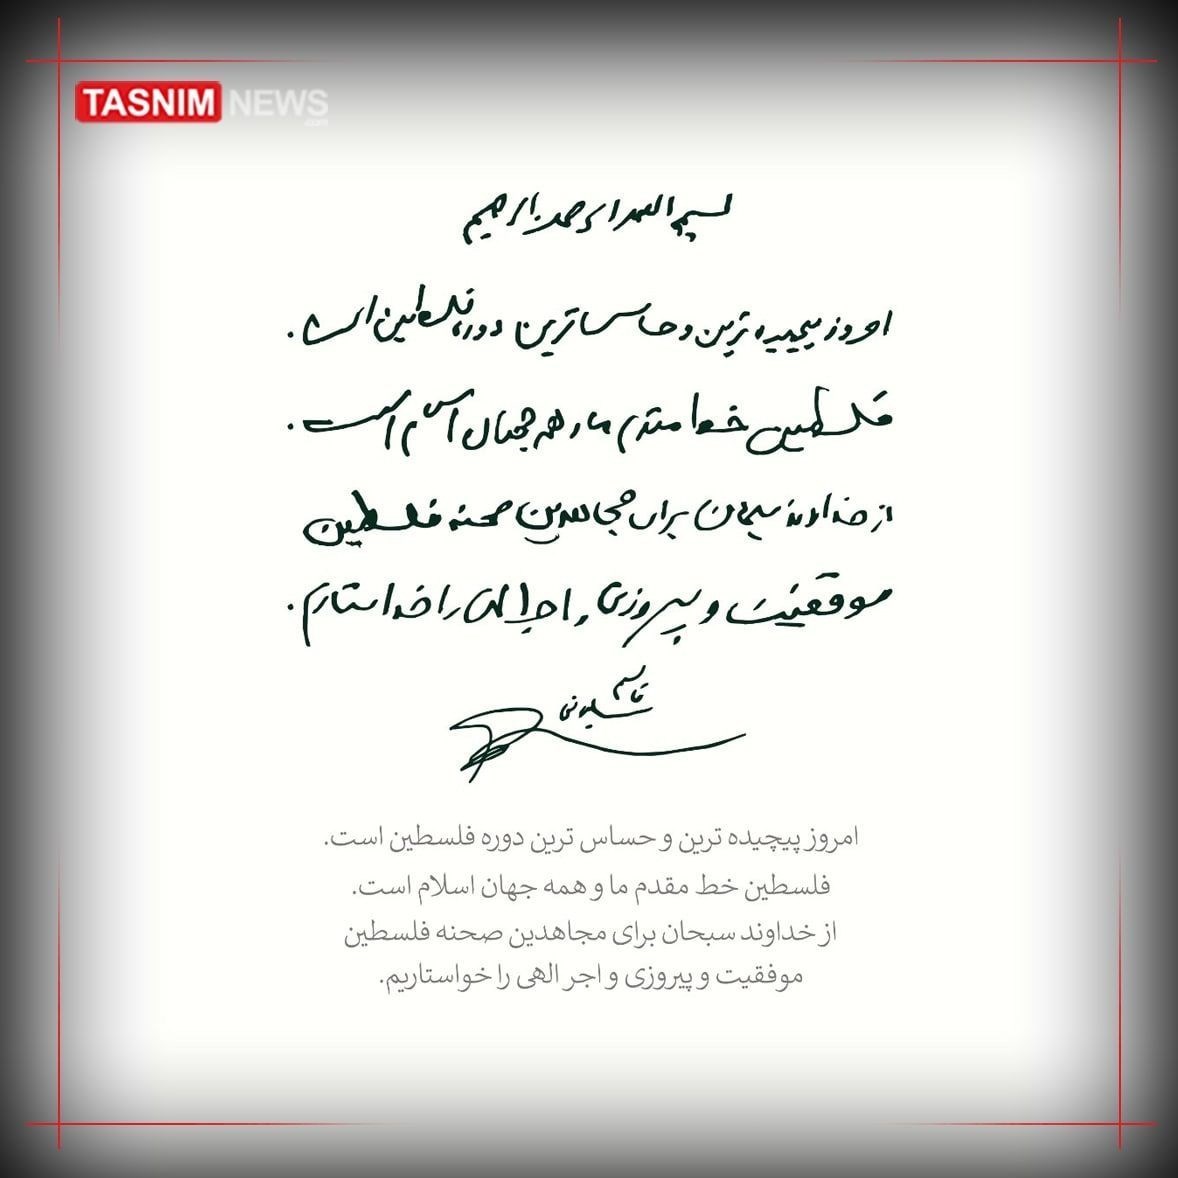 TASNIM NEWS
.com
بسم الله الرحمن الرحیم
امروز پیچیده ترین و حساس ترین دوره فلسطین است.
فلسطین خط مقدم ما و همه جهان اسلام است.
از خداوند سبحان برای مجاهدین صحنه فلسطین
موفقیت و پیروزی و اجر الهی را خواستاریم.
قاسم
سلیمانی
امروز پیچیده ترین و حساس ترین دوره فلسطین است.
فلسطین خط مقدم ما و همه جهان اسلام است.
از خداوند سبحان برای مجاهدین صحنه فلسطین
موفقیت و پیروزی و اجر الهی را خواستاریم.